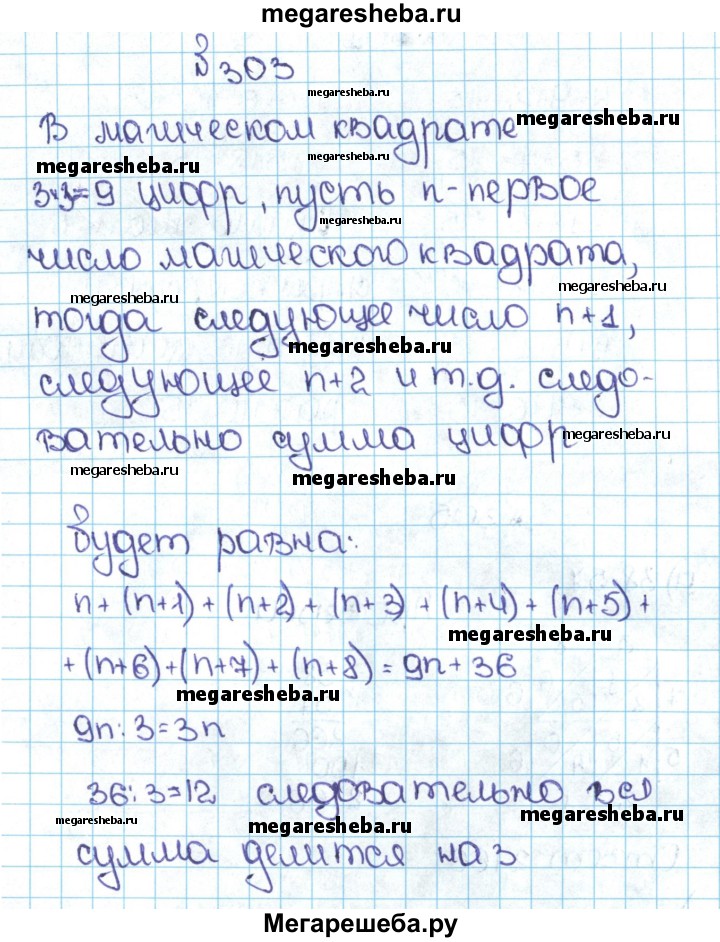 megaresheba.ru
№303
megaresheba.ru
В магическом квадрате megaresheba.ru
megaresheba.ru megaresheba.ru
3·3=9 цифр, пусть n-первое
megaresheba.ru
число магического квадрата,
megaresheba.ru megaresheba.ru
тогда следующее число n+1,
megaresheba.ru
следующее n+2 и т.д. следо-
вательно сумма цифр megaresheba.ru
megaresheba.ru megaresheba.ru
будет равна:
n + (n+1) + (n+2) + (n+3) + (n+4) + (n+5) +
megaresheba.ru
+ (n+6) + (n+7) + (n+8) = 9n + 36
megaresheba.ru
9n : 3 = 3n
36 : 3 = 12, следовательно вся
megaresheba.ru megaresheba.ru megaresheba.ru
сумма делится на 3
Мегарешеба.ру